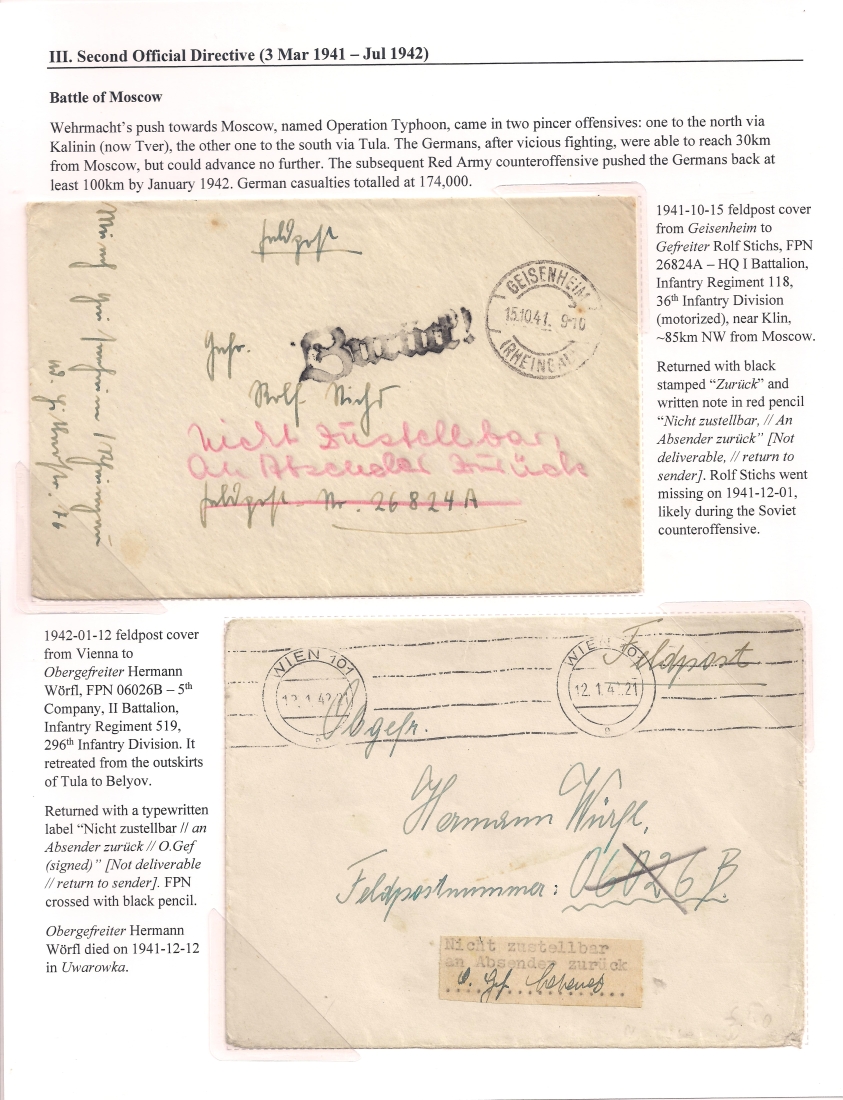 III. Second Official Directive (3 Mar 1941 – Jul 1942)
Battle of Moscow
Wehrmacht's push towards Moscow, named Operation Typhoon, came in two pincer offensives: one to the north via
Kalinin (now Tver), the other one to the south via Tula. The Germans, after vicious fighting, were able to reach 30km
from Moscow, but could advance no further. The subsequent Red Army counteroffensive pushed the Germans back at
least 100km by January 1942. German casualties totalled at 174,000.
1941-10-15 feldpost cover
from Geisenheim to
Gefreiter Rolf Stichs, FPN
26824A – HQ I Battalion,
Infantry Regiment 118,
36th Infantry Division
(motorized), near Klin,
~85km NW from Moscow.
Returned with black
stamped “Zurück” and
written note in red pencil
“Nicht zustellbar, // An
Absender zurück” [Not
deliverable, // return to
sender]. Rolf Stichs went
missing on 1941-12-01,
likely during the Soviet
counteroffensive.
Feldpost
GEISENHEIM
15.10.41. 9-10
(RHEINGAU)
Zurück!
Gefr.
Rolf Stichs
Nicht zustellbar,
An Absender zurück
Feldpost-Nr. 26824A
1942-01-12 feldpost cover
from Vienna to
Obergefreiter Hermann
Wörfl, FPN 06026B – 5th
Company, II Battalion,
Infantry Regiment 519,
296th Infantry Division. It
retreated from the outskirts
of Tula to Belyov.
Returned with a typewritten
label “Nicht zustellbar // an
Absender zurück // O.Gef
(signed)” [Not deliverable
// return to sender]. FPN
crossed with black pencil.
Obergefreiter Hermann
Wörfl died on 1941-12-12
in Uwarowka.
WIEN 101
12.1.42.21
WIEN 101
12.1.42.21
Feldpost
Obgefr.
Hermann Würfl,
Feldpostnummer: 06026 B.
Nicht zustellbar
an Absender zurück
O. Gef